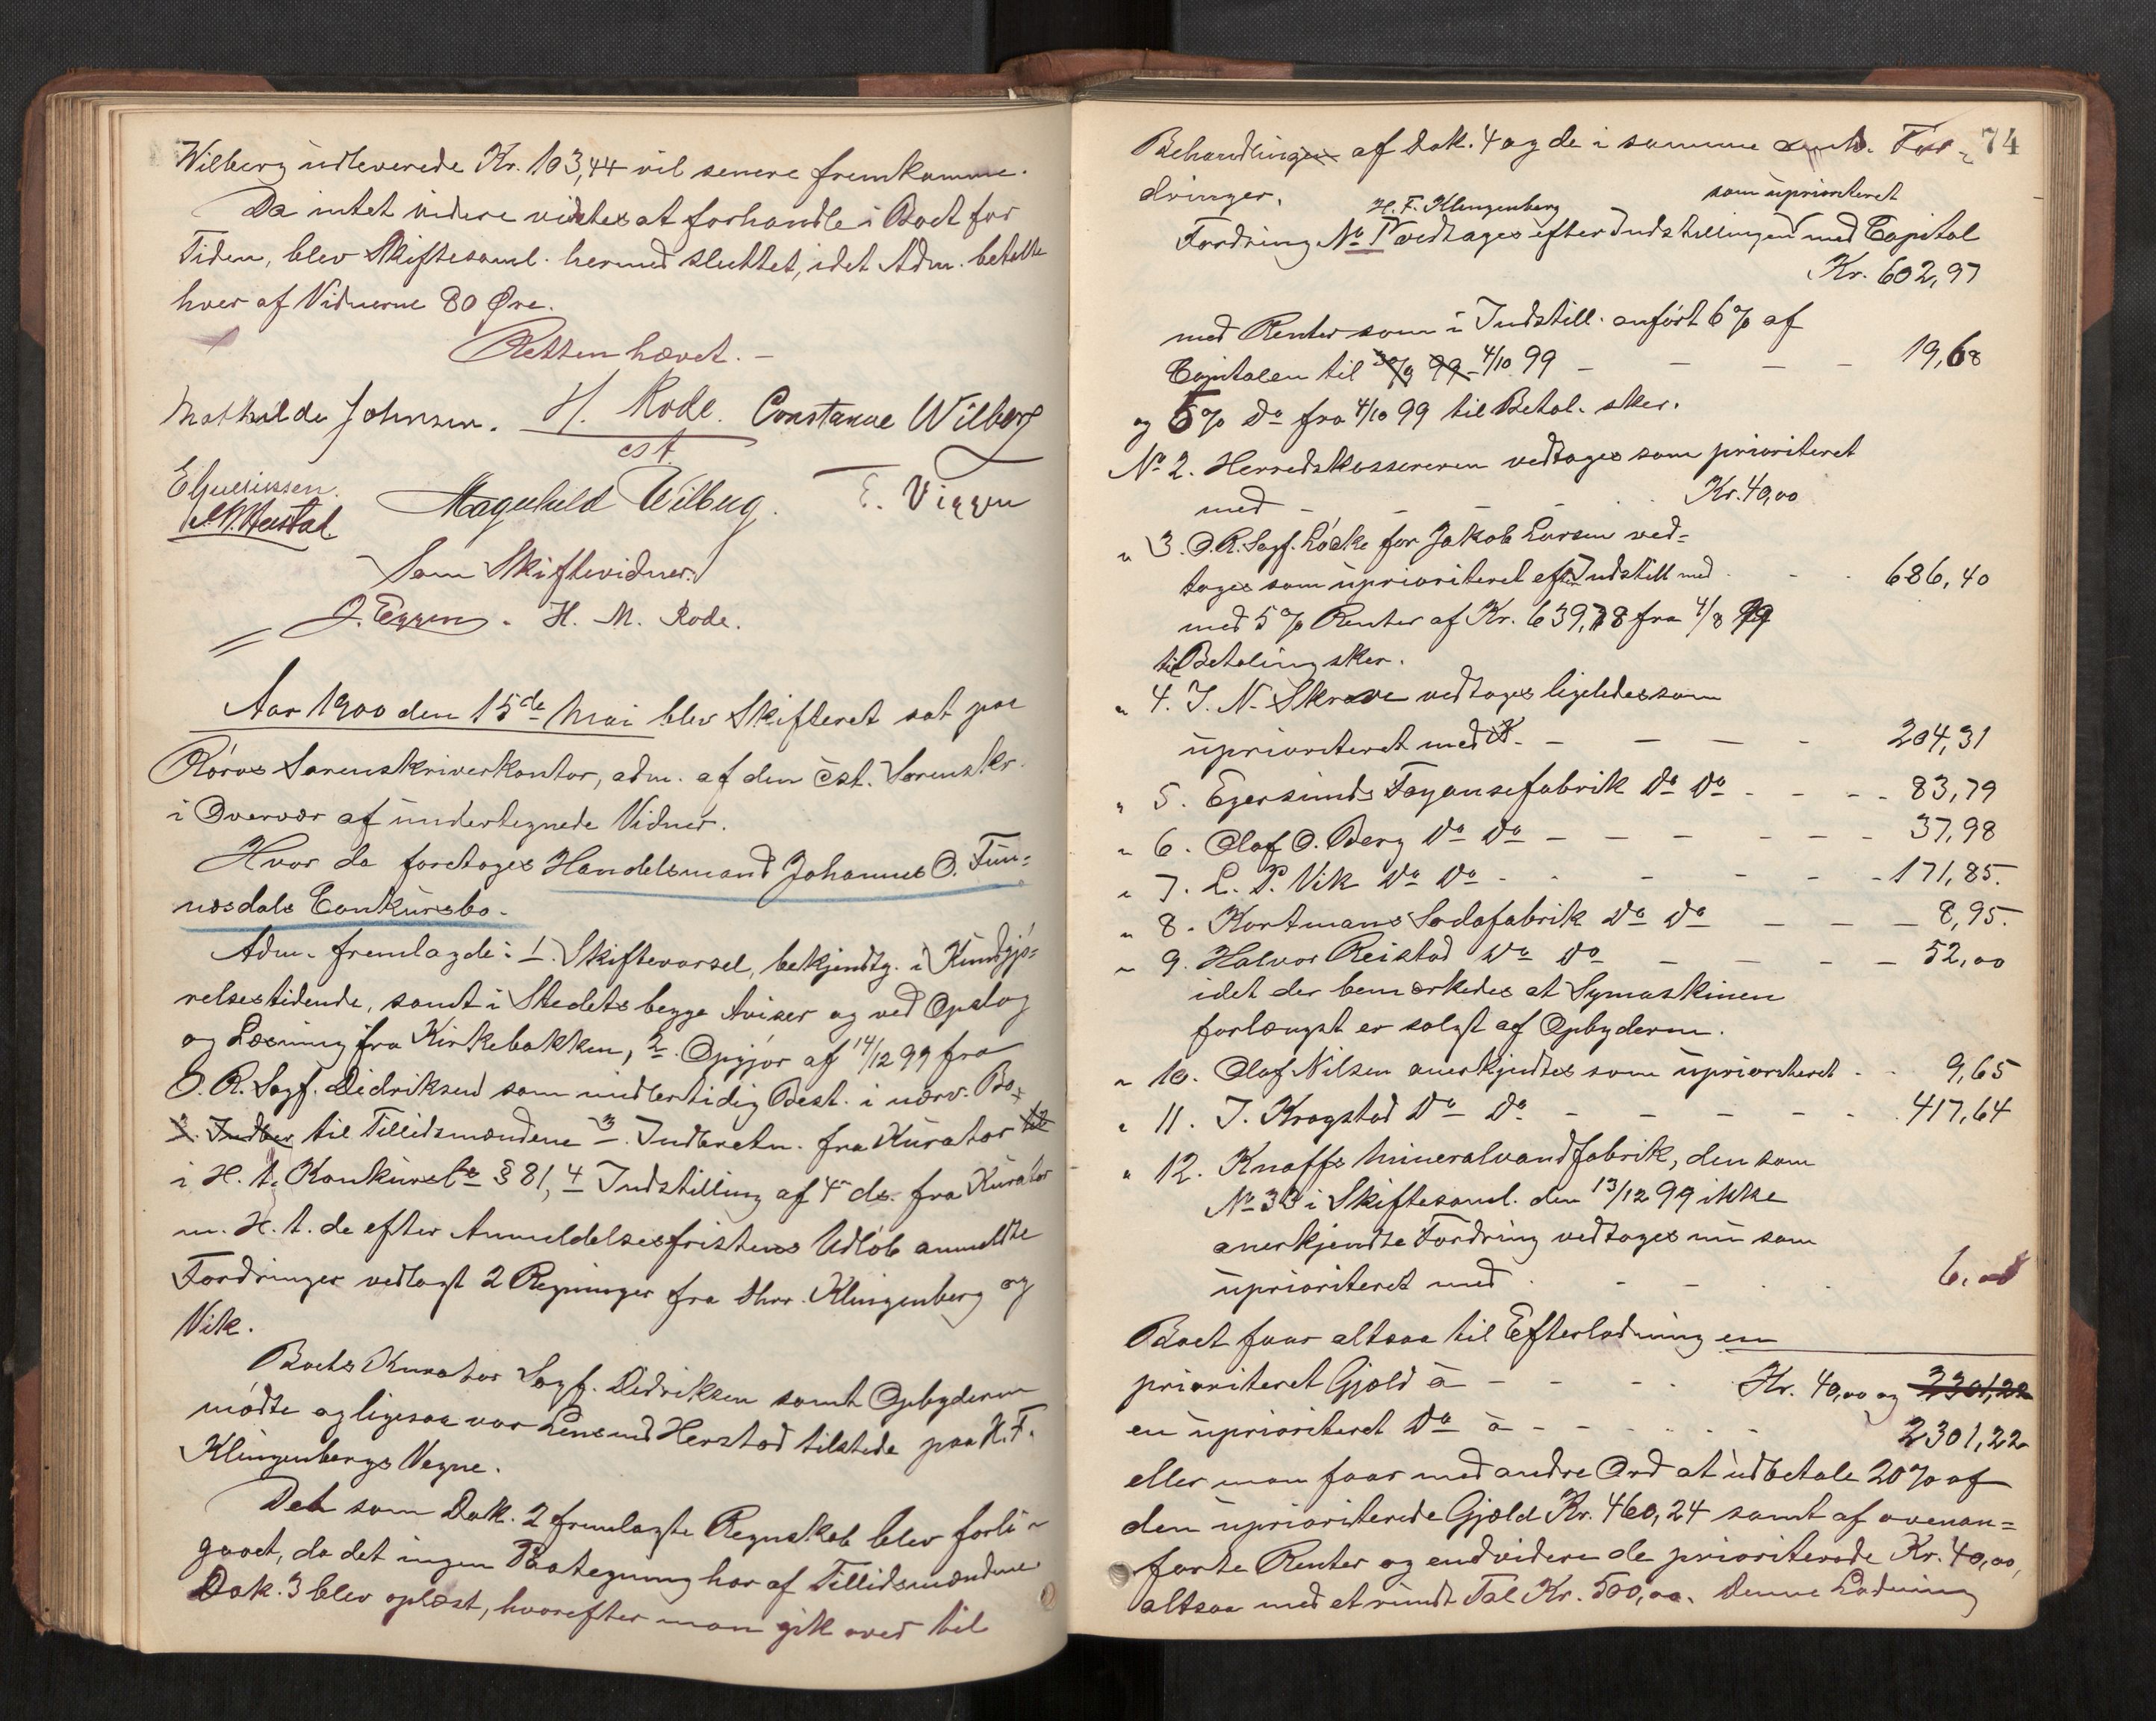 Wilberg udleverede Kr. 103,44 vil senere fremkomme.
Da intet videre vidstes at forhandle i Boet for
Tiden, blev Skiftesaml. hermed sluttet, idet Adm. betalte
hver af Vidnerne 80 Øre.
Retten hævet. —
Mathilde Johnsen. H. Rode. Constance Wilberg
cst.
Magnhild Wilberg. E. Viggen
Som Skiftevidner:
J. Eggen. H. M. Rode.
Aar 1900 den 15de Mai blev Skifteret sat paa
Røros Sorenskriverkontor, adm. af den cst. Sorenskr.
i Overvær af undertegnede Vidner.
Hvor da foretoges Handelsmand Johannes O. Fun=
næsdals Conkursbo.
Adm. fremlagde: 1. Skiftevarsel, bekjendtg. i Kundgjø=
relsestidende, samt i Stedets begge Aviser og ved Opslag
og Læsning fra Kirkebakken, 2. Opgjør af 14/12 99 fra
O. R. Sagf. Didriksen som midlertidig Best. i nærv. Bo
3. Indber til Tillidsmændene 3. Indberetn. fra Kurator til
i H. t. Konkursl. § 81, 4 Indstilling af 4 ds. fra Kurator
m. H. t. de efter Anmeldelsesfristens Udløb anmeldte
Fordringer vedlagt 2 Regninger fra Hrr. Klingenberg og
Vik.
Boets Kurator Sagf. Didriksen samt Opbyderen
mødte og ligesaa var Lensmd Herstad tilstede paa H. F.
Klingenbergs Vegne.
Det som Dok. 2 fremlagte Regnskab blev forbi=
gaaet, da det ingen Paategning har af Tillidsmændene
Dok. 3 blev oplæst, hvorefter man gik over til
74
Behandlingen af Dok. 4 og de i samme anm. For=
dringer.
H. F. Klingenberg som uprioriteret
Fordring No 1 vedtages efter Indstillingen med Capital
Kr. 602,97
med Renter som i Indstill. anført 6 % af
Capitalen til 30/9 99 4/10 99 — — — — 19,68
og 5 % do fra 4/10 99 til Betal. sker.
No 2. Herredskassereren vedtages som prioriteret
med - - - - - Kr. 40,00
" 3. O. R. Sagf. Løcke for Jakob Larsen ved=
tages som uprioriteret efter Indstill med - - 686,40
med 5 % Renter af Kr. 639,78 fra 4/8 99
til Betaling sker.
" 4. J. N. Skrove vedtages ligeledes som
uprioriteret med - — — — - 204,31
" 5. Egersunds Fayansefabrik do do - - - - 83,79
" 6. Olaf O. Berg do do — — — — — 37,98
" 7. L. P. Vik do do - - - - - 171,85.
" 8. Kortmans Sodafabrik do do — — — 8,95.
" 9. Halvor Reistad do do — — — — 52,00
idet der bemærkedes at Symaskinen
forlængst er solgt af Opbyderen.
" 10. Olaf Nilsen anerkjendtes som uprioriteret - - 9,65
" 11. J. Krogstad do do - - - - - 417,64
" 12. Knoffs Mineralvandfabrik, den som
No 33 i Skiftesaml. den 13/12 99 ikke
anerkjendte Fordring vedtages nu som
uprioriteret med - - - - 6,00
Boet faar altsaa til Efterladning en
prioriteret Gjæld à — — - - Kr. 40,00 og 2301,22
en uprioriteret do à - - - - - 2301,22
eller man faar med andre Ord at udbetale 20 % af
den uprioriterede Gjæld Kr. 460,24 samt af ovenan=
førte Renter og endvidere de prioriterede Kr. 40,00,
altsaa med et rundt Tal Kr. 500,00. Denne Ladning